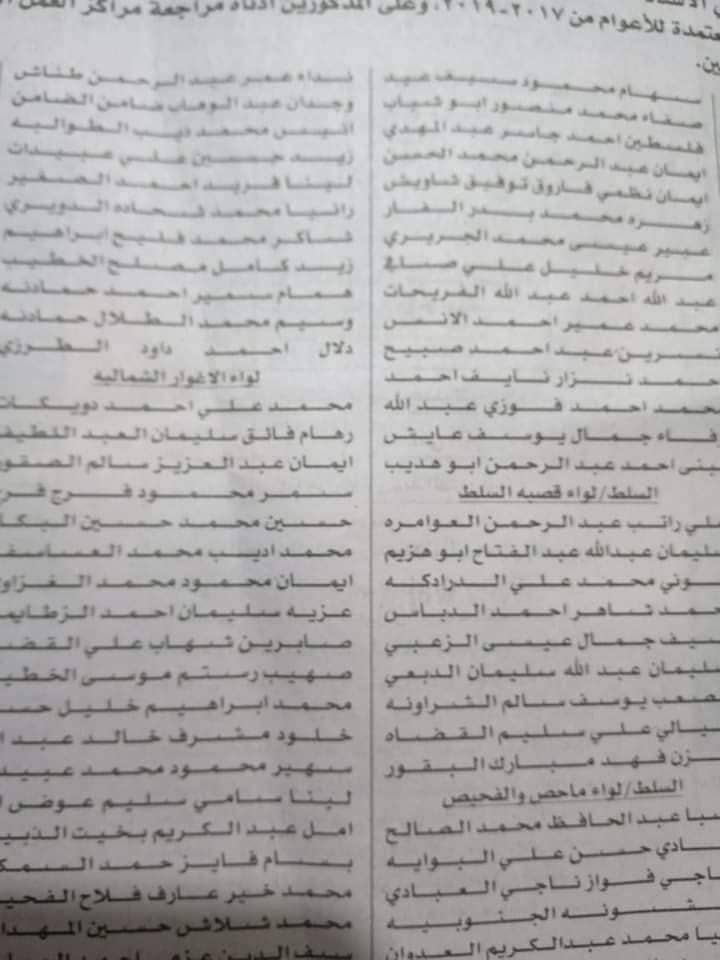 معتمدة للأعوام من ٢٠١٧-٢٠١٩، وعلى المذكورين ادناه مراجعة مراكز العمل
سهام محمود سيف عيد
صفاء محمد منصور ابو شباب
فلسطين احمد جاسر عبد المهدي
ايمان عبد الرحمن محمد الحسن
ايمان نظمي فاروق توفيق شاويش
زهره محمد بدر الفار
عبير عيسى محمد الجريري
مريم خليل علي صافي
عبد الله احمد عبد الله الفريحات
محمد عمير احمد الانس
نسرين عبد احمد صبيح
حمد نزار نايف احمد
محمد احمد فوزي عبد الله
جمال يوسف عايش
لبنى احمد عبد الرحمن ابو هديب
السلط/لواء قصبه السلط
علي راتب عبد الرحمن العوامره
سليمان عبدالله عبد الفتاح ابو هزيم
محمد علي الدرادكه
شاهر احمد الدباس
سيف جمال عيسى الزعبي
سليمان عبد الله سليمان الدبعي
مصعب يوسف سالم الشراونه
علي سليم القضاه
فهد مبارك البقور
السلط/لواء ماحص والفحيص
عبد الحافظ محمد الصالح
حسن علي البوايه
فواز ناجي العبادي
شونه الجنوبيه
محمد عبدالكريم العدوان
نداء عمر عبد الرحمن طناش
وجدان عبد الوهاب ضامن الضامن
انيس محمد ذيب الطوالبه
زيد حسين علي عبيدات
لينا فريد احمد الصغير
رانيا محمد شحاده الدويري
شاكر محمد فليح ابراهيم
زيد كامل مصلح الخطيب
همام سمير احمد حمادنه
وسيم محمد الطلال حمادنه
دلال احمد داود الطرزي
لواء الاغوار الشماليه
محمد علي احمد دويكات
رهام فائق سليمان العبد اللطيف
ايمان عبد العزيز سالم الصقور
سمر محمود فرج
حسين محمد حسين
محمد اديب محمد
ايمان محمود محمد
عزيه سليمان احمد
صابرين شهاب علي
صهيب رستم موسى
محمد ابراهيم خليل
خلود مشرف خالد عبد
سهير محمود محمد
لينا سامي سليم عوض
امل عبد الكريم بخيت
بسام فايز حمد
محمد خير عارف فلاح
محمد شلاش حسين
سيف الدين